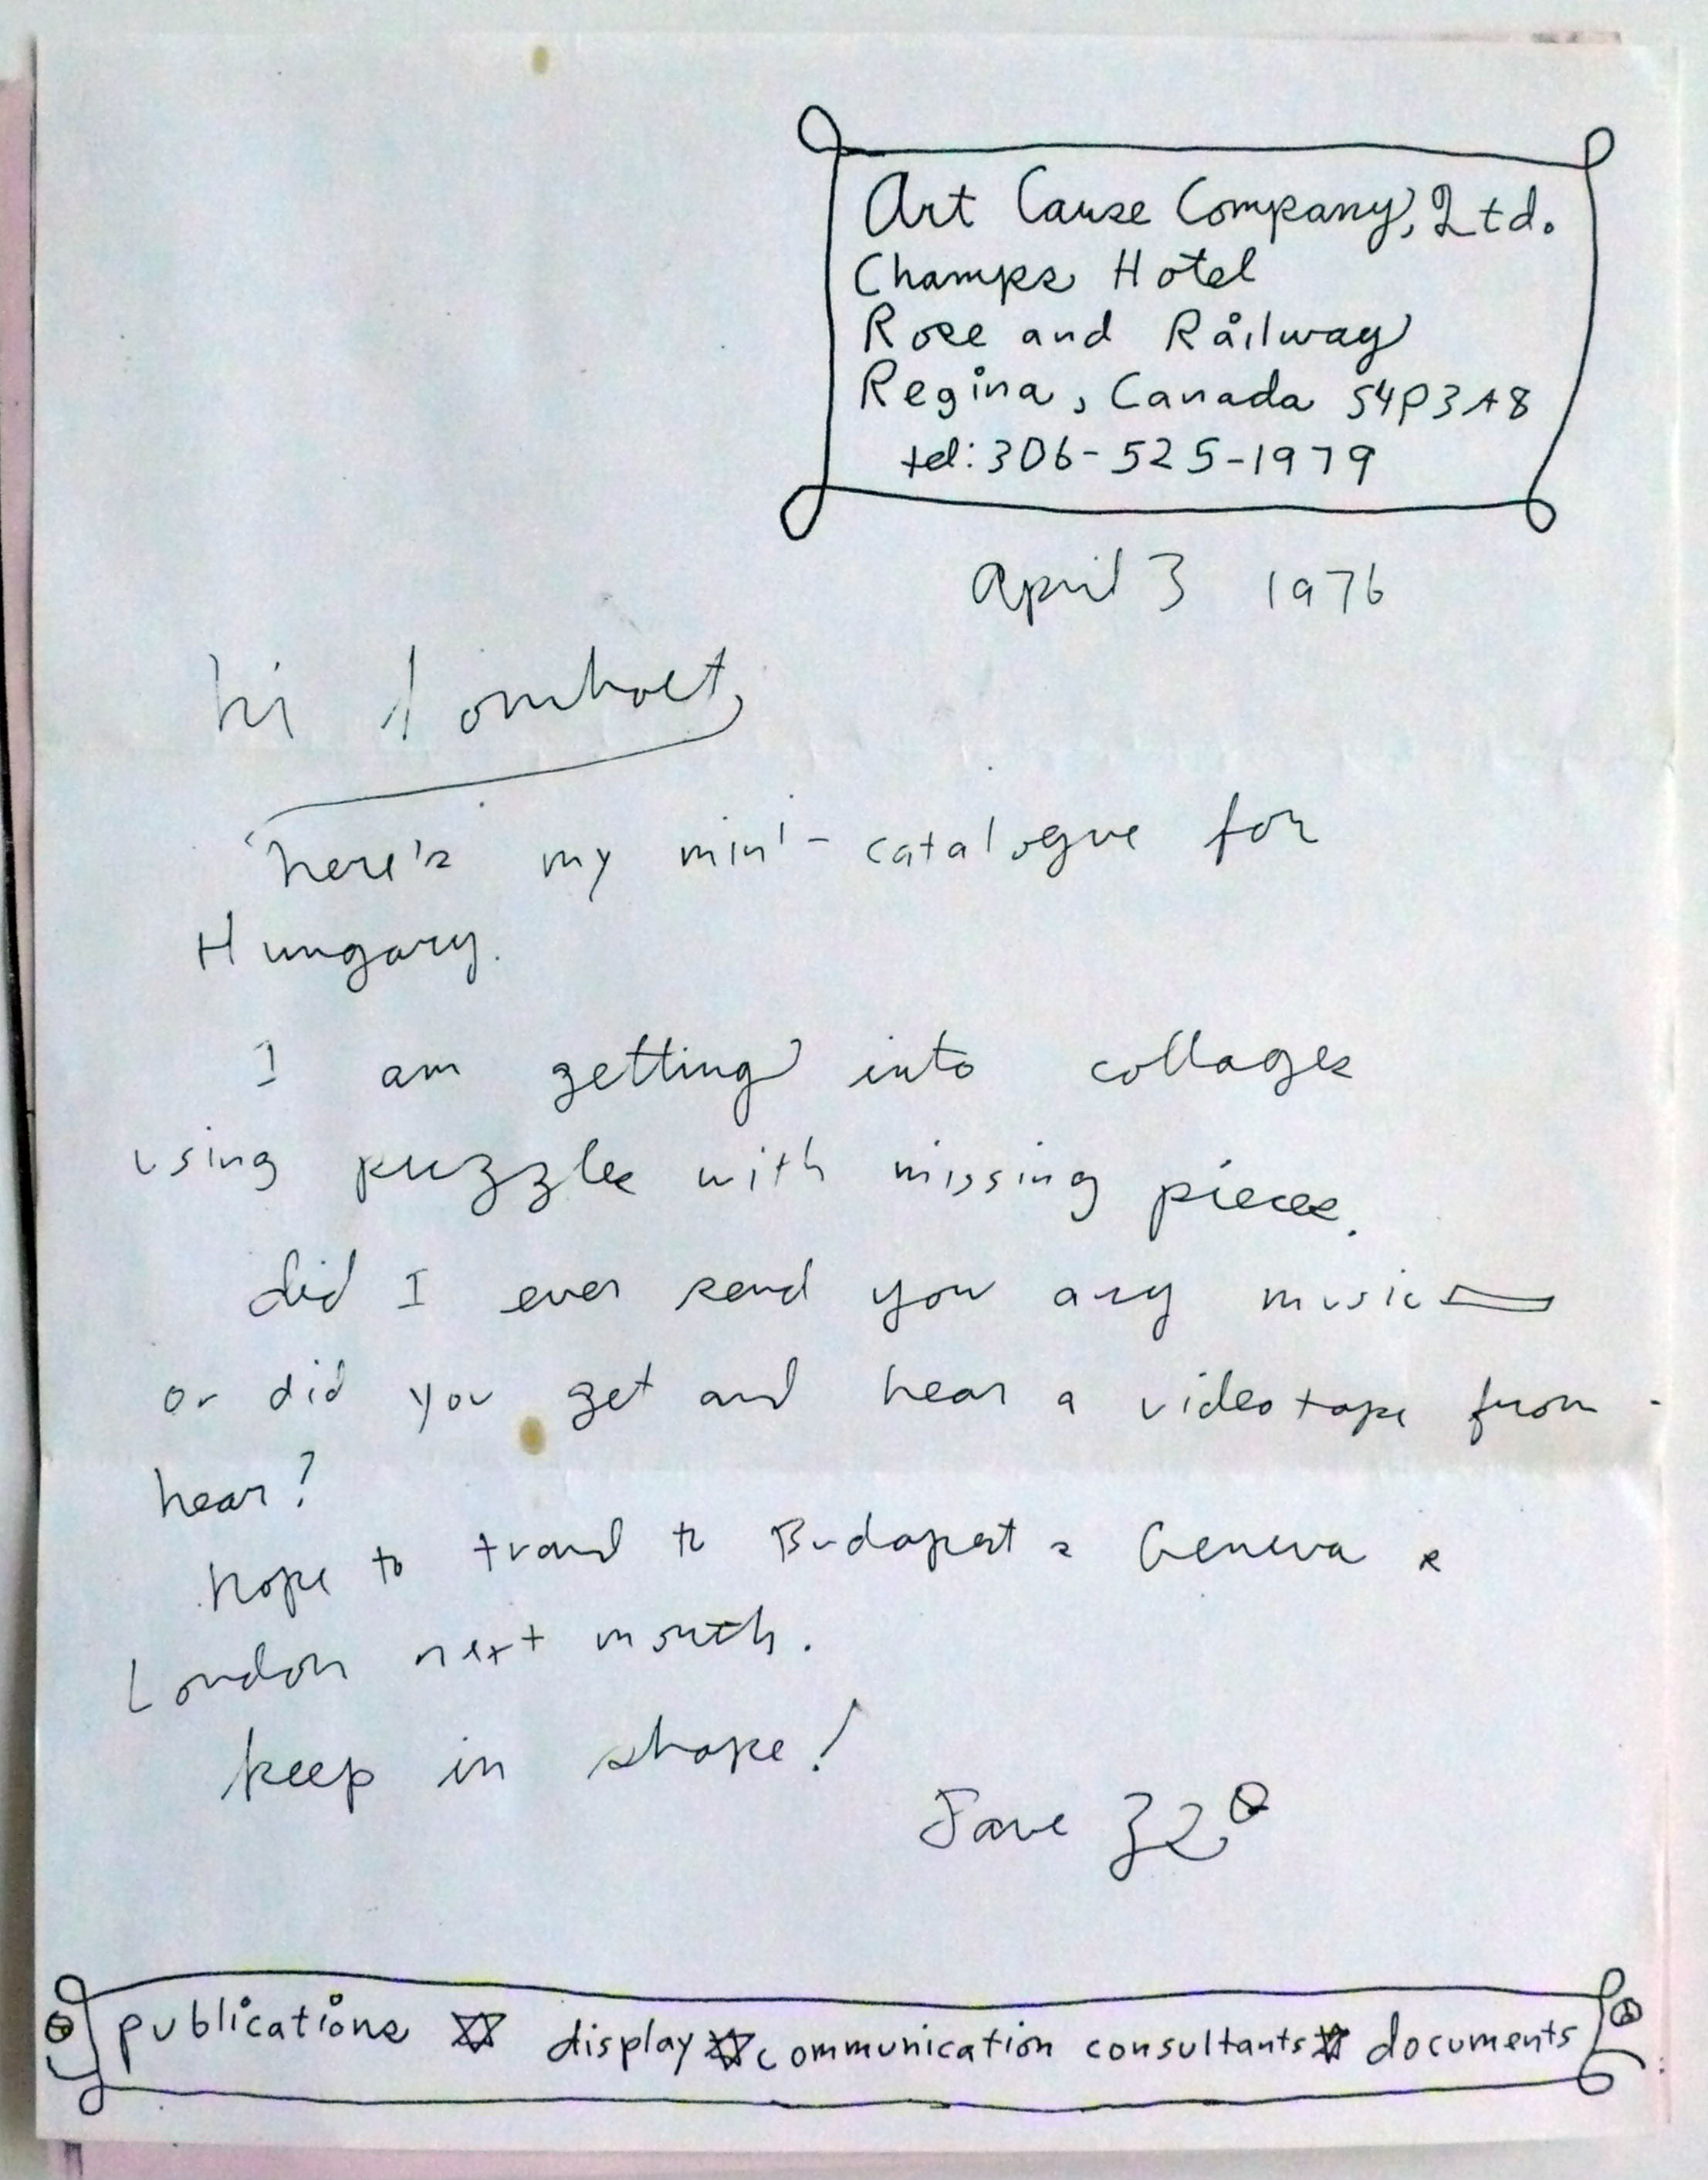 Art Cause Company, Ltd.
Champs Hotel
Rose and Railway
Regina, Canada S4P3A8
tel: 306-525-1979
April 3 1976
hi
here's my mini-catalogue for
Hungary.
I am getting into collages
using puzzles with missing pieces.
did I ever send you any music
or did you get and hear a videotape from
hear?
hope to travel to Budapest & Geneva &
London next month.
keep in shape!
publications ✡ display ✡ communication consultants ✡ documents